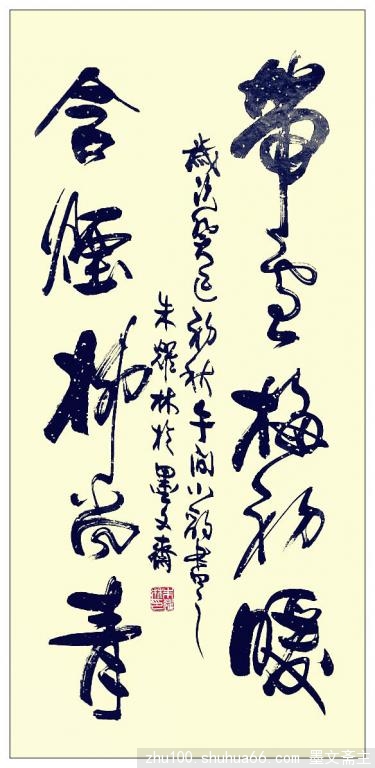 帶雪梅初暖
歲次癸巳初秋午間小酌書之
朱耀林於墨文齋
含煙柳尚青
zhu100.shuhua66.com 墨文斋主